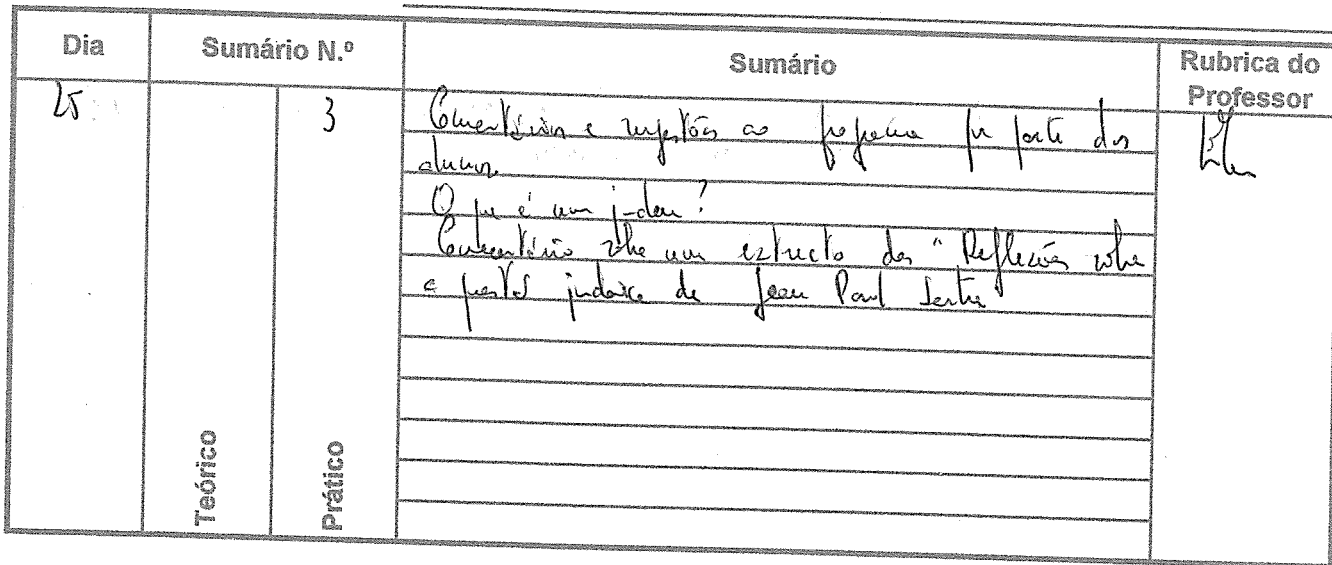 Dia Sumário N.º Sumário Rubrica do Professor
25 3 Comentários e sugestões ao programa por parte dos
alunos.
O que é um judeu?
Comentário sobre um extracto das "Reflexões sobre
a questão judaica de Jean Paul Sartre"
Teórico Prático